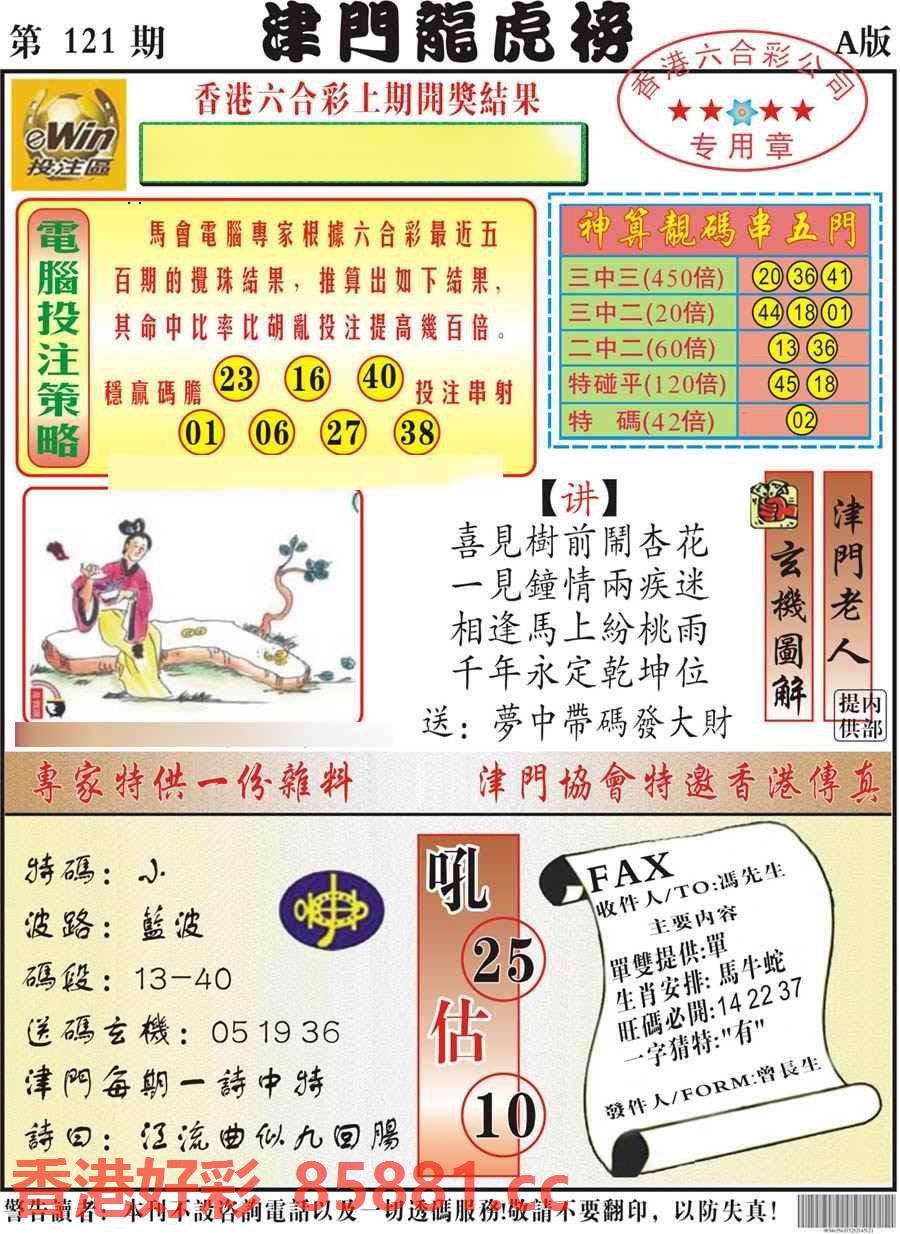 第 121 期
津門龍虎榜
A版
香港六合彩公司
专用章
eWin
投注區
香港六合彩上期開獎結果
電腦投注策略
馬會電腦專家根據六合彩最近五
百期的攪珠結果，推算出如下結果，
其命中比率比胡亂投注提高幾百倍。
穩贏碼膽 23 16 40 投注串射
01 06 27 38
神算靚碼串五門
三中三(450倍) 20 36 41
三中二(20倍) 44 18 01
二中二(60倍) 13 36
特碰平(120倍) 45 18
特 碼(42倍) 02
【讲】
喜見樹前鬧杏花
一見鐘情兩疾迷
相逢馬上紛桃雨
千年永定乾坤位
送：夢中帶碼發大財
玄機圖解
津門老人
内部提供
專家特供一份雜料
津門協會特邀香港傳真
特碼：小
波路：藍波
碼段：13-40
送碼玄機：05 19 36
津門每期一詩中特
詩曰：江流曲似九回腸
吼
25
估
10
FAX
收件人/TO:馮先生
主要内容
單雙提供:單
生肖安排:馬牛蛇
旺碼必開:14 22 37
一字猜特:"有"
發件人/FORM:曾長生
香港好彩 85881.cc
警告讀者：本刊不設咨詢電話以及一切透碼服務!敬請不要翻印，以防失真！